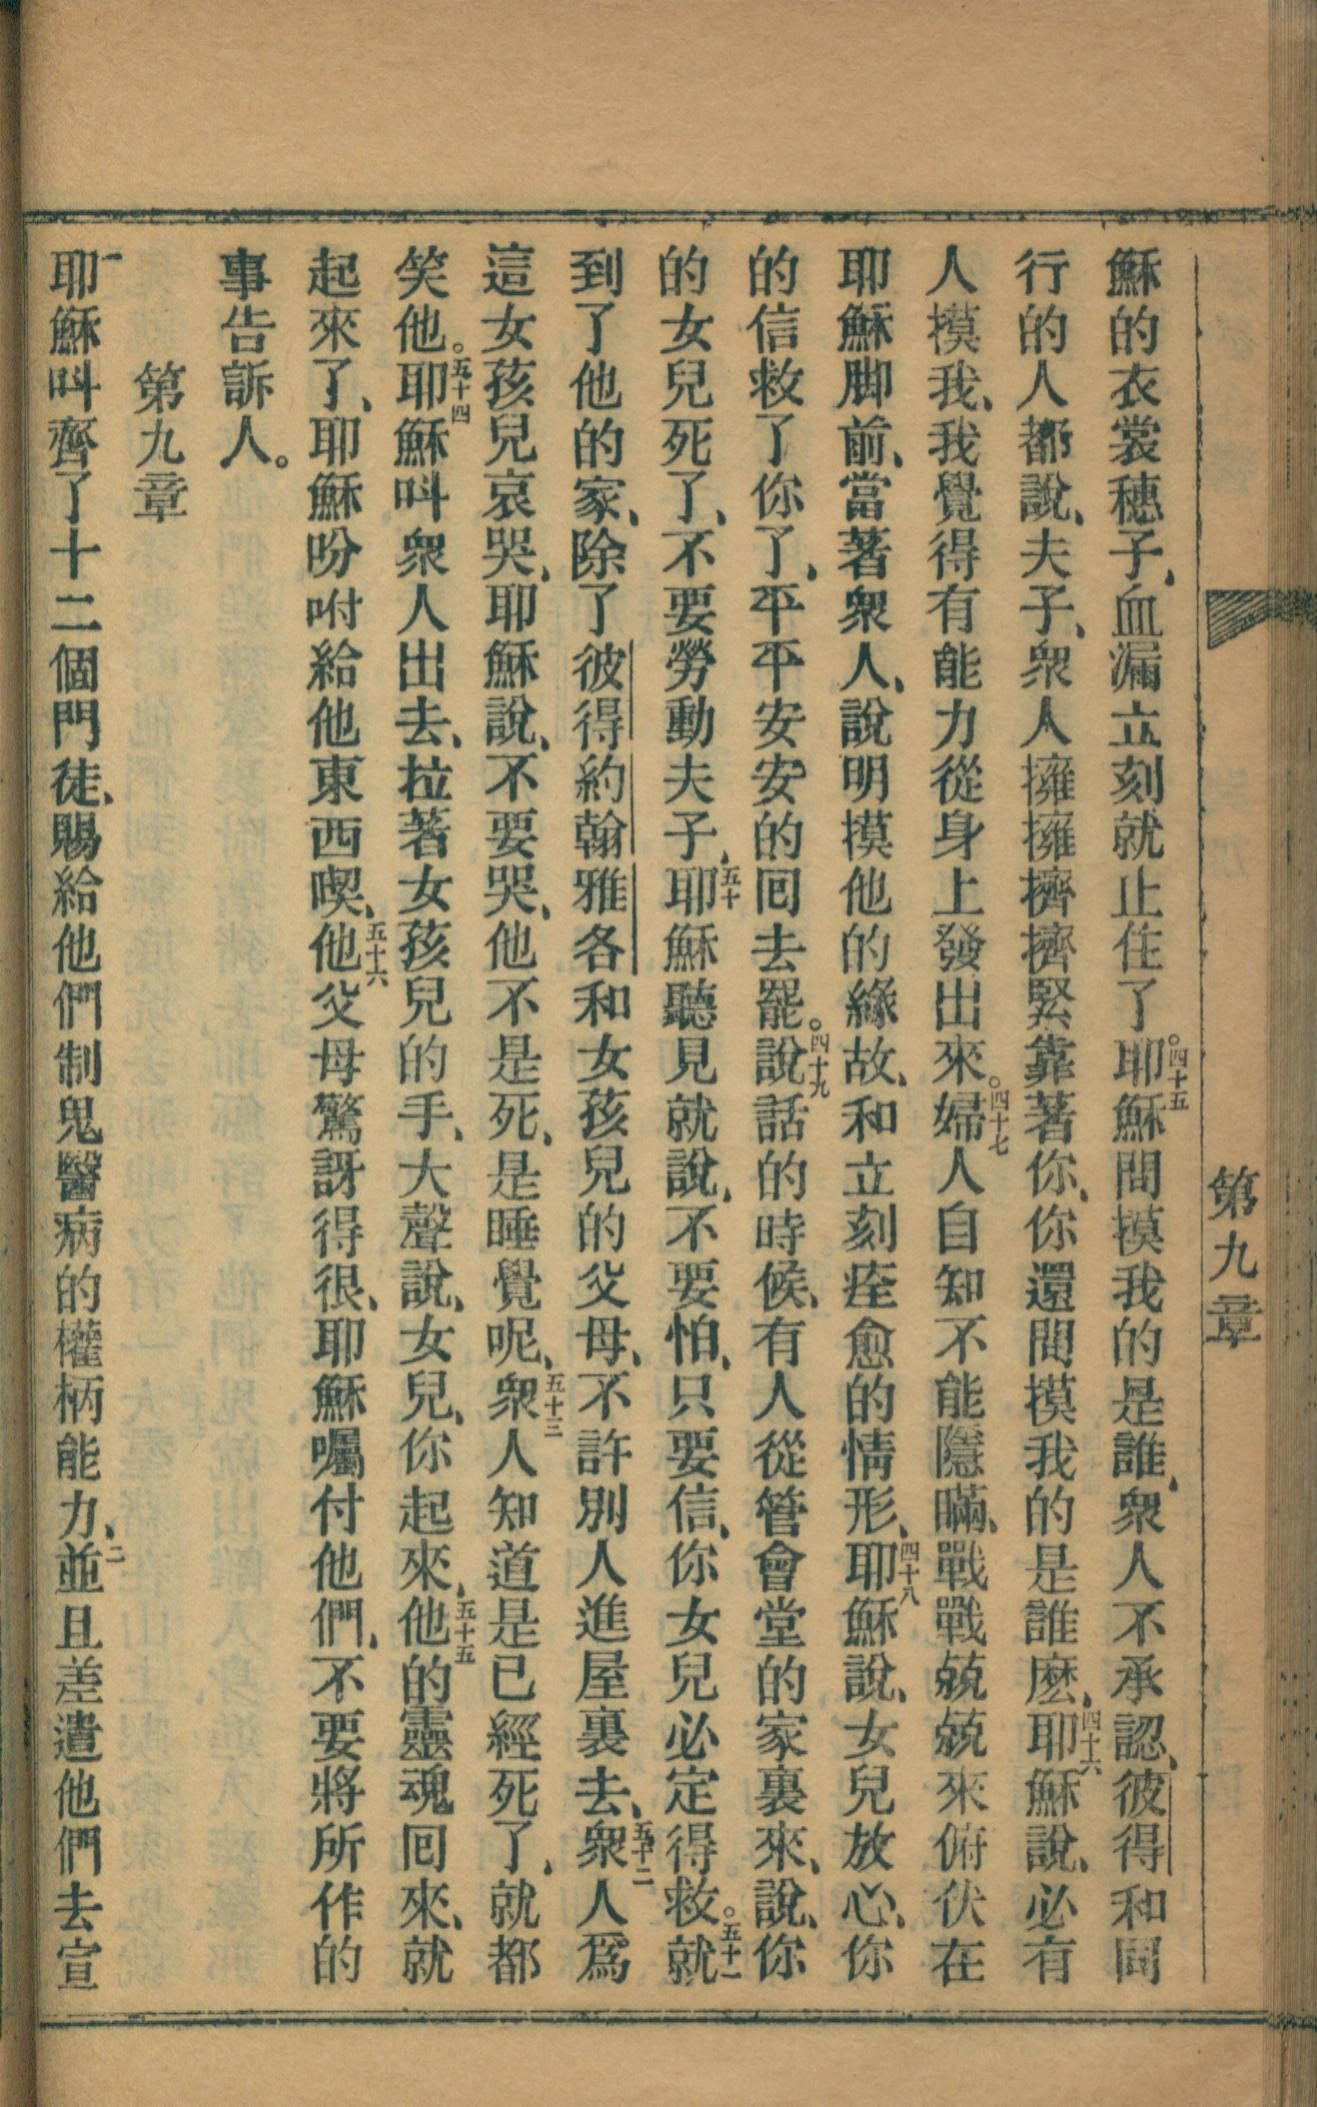 第九章
穌的衣裳穗子、血漏立刻就止住了。四十五耶穌問摸我的是誰、衆人不承認、彼得和同
行的人都說、夫子、衆人擁擁擠擠緊靠著你、你還問摸我的是誰麽、四十六耶穌說、必有
人摸我、我覺得有能力從身上發出來。四十七婦人自知不能隱瞞、戰戰兢兢來俯伏在
耶穌脚前、當著衆人、說明摸他的緣故、和立刻痊愈的情形、四十八耶穌說、女兒放心、你
的信救了你了、平平安安的回去罷。四十九說話的時候、有人從管會堂的家裏來、說、你
的女兒死了、不要勞動夫子、五十耶穌聽見就說、不要怕、只要信、你女兒必定得救。五十一就
到了他的家、除了彼得約翰雅各和女孩兒的父母、不許別人進屋裏去、五十二衆人爲
這女孩兒哀哭、耶穌說、不要哭、他不是死、是睡覺呢、五十三衆人知道是已經死了、就都
笑他。五十四耶穌叫衆人出去、拉著女孩兒的手、大聲說、女兒、你起來、五十五他的靈魂回來、就
起來了、耶穌吩咐給他東西喫、五十六他父母驚訝得很、耶穌囑付他們、不要將所作的
事告訴人。
第九章
一耶穌叫齊了十二個門徒、賜給他們制鬼醫病的權柄能力、二並且差遣他們去宣